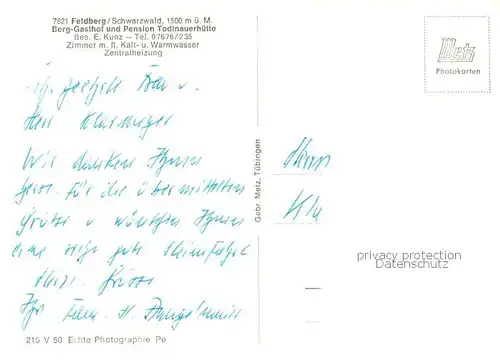 7821 Feldberg/Schwarzwald, 1500 m ü. M.
Berg-Gasthof und Pension Todtnauerhütte
Bes. E. Kunz – Tel. 07676/235
Zimmer m. fl. Kalt- u. Warmwasser
Zentralheizung
Metz
Photokarten
geehrte Frau u.
Herr
Wir danken Ihnen
für die übermittelten
Grüße u. wünschen Ihnen
eine gute Heimfahrt
Grüsse
Ihr Fam. H.
Herrn
Kla
Gebr. Metz, Tübingen
privacy protection
Datenschutz
21S V 50 Echte Photographie Pe